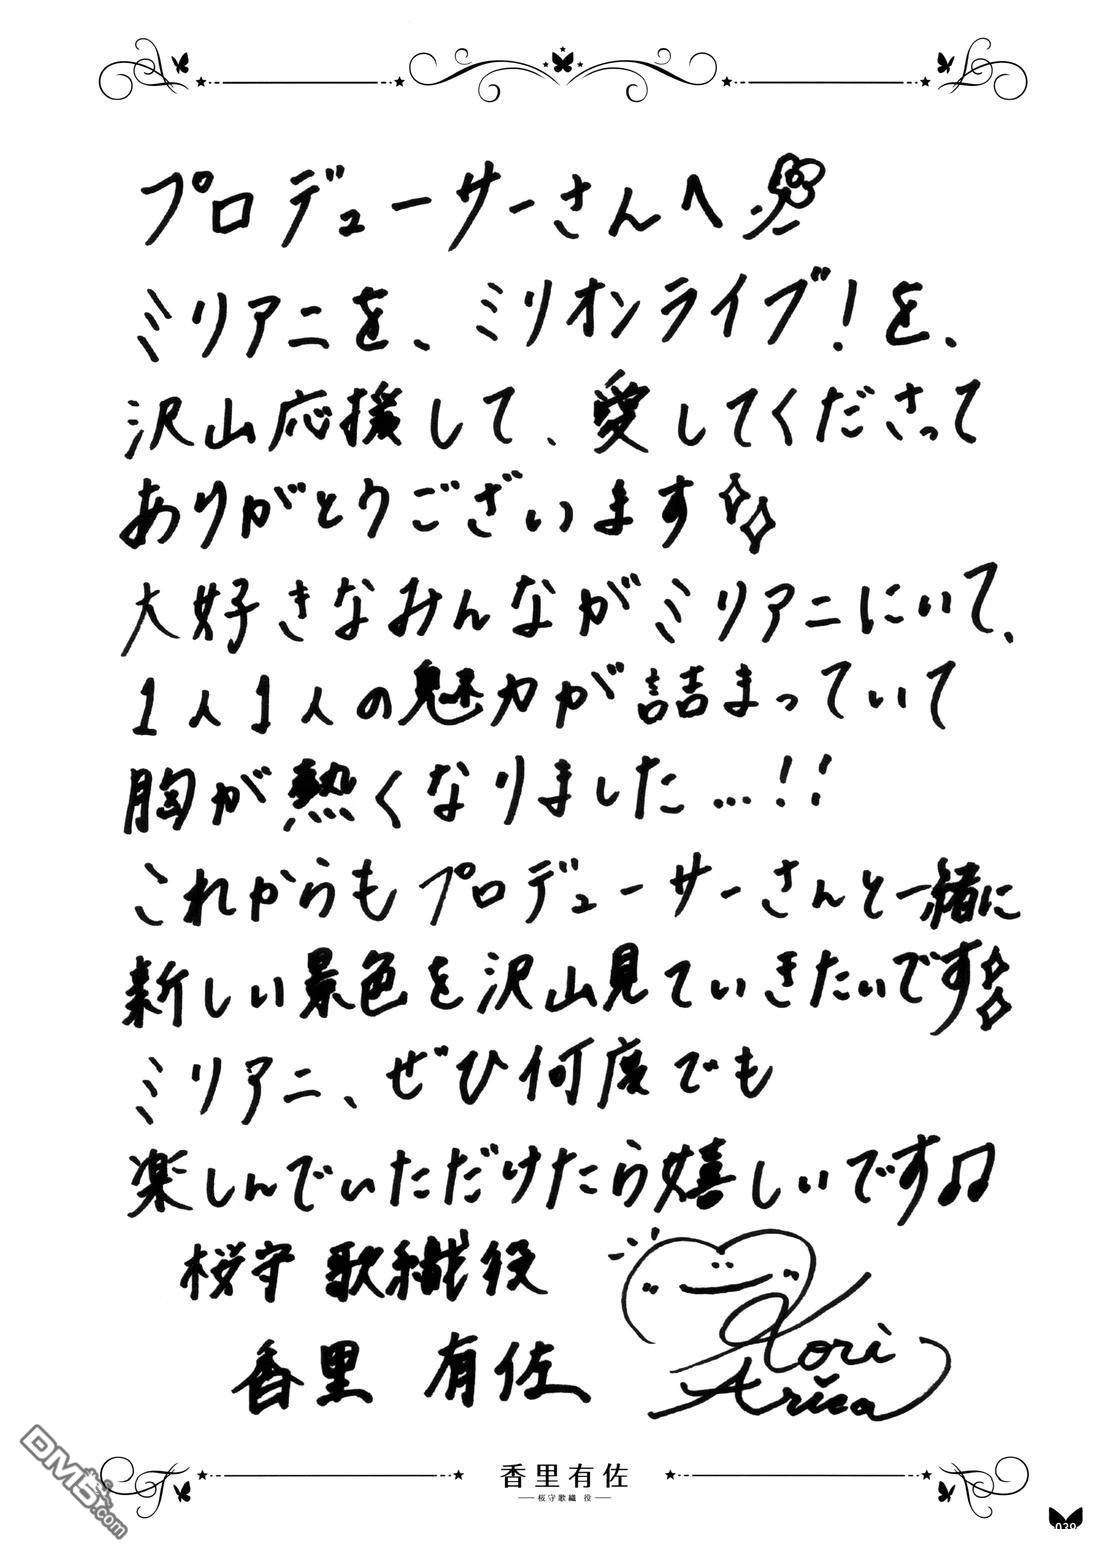 プロデューサーさんへ
ミリアニを、ミリオンライブ!を、
沢山応援して、愛してくださって
ありがとうございます
大好きなみんながミリアニにいて、
1人1人の魅力が詰まっていて
胸が熱くなりました…!!
これからもプロデューサーさんと一緒に
新しい景色を沢山見ていきたいです
ミリアニ、ぜひ何度でも
楽しんでいただけたら嬉しいです♫
桜守 歌織役
香里 有佐
Kori
Arisa
香里有佐
桜守歌織 役
DM5.com
039